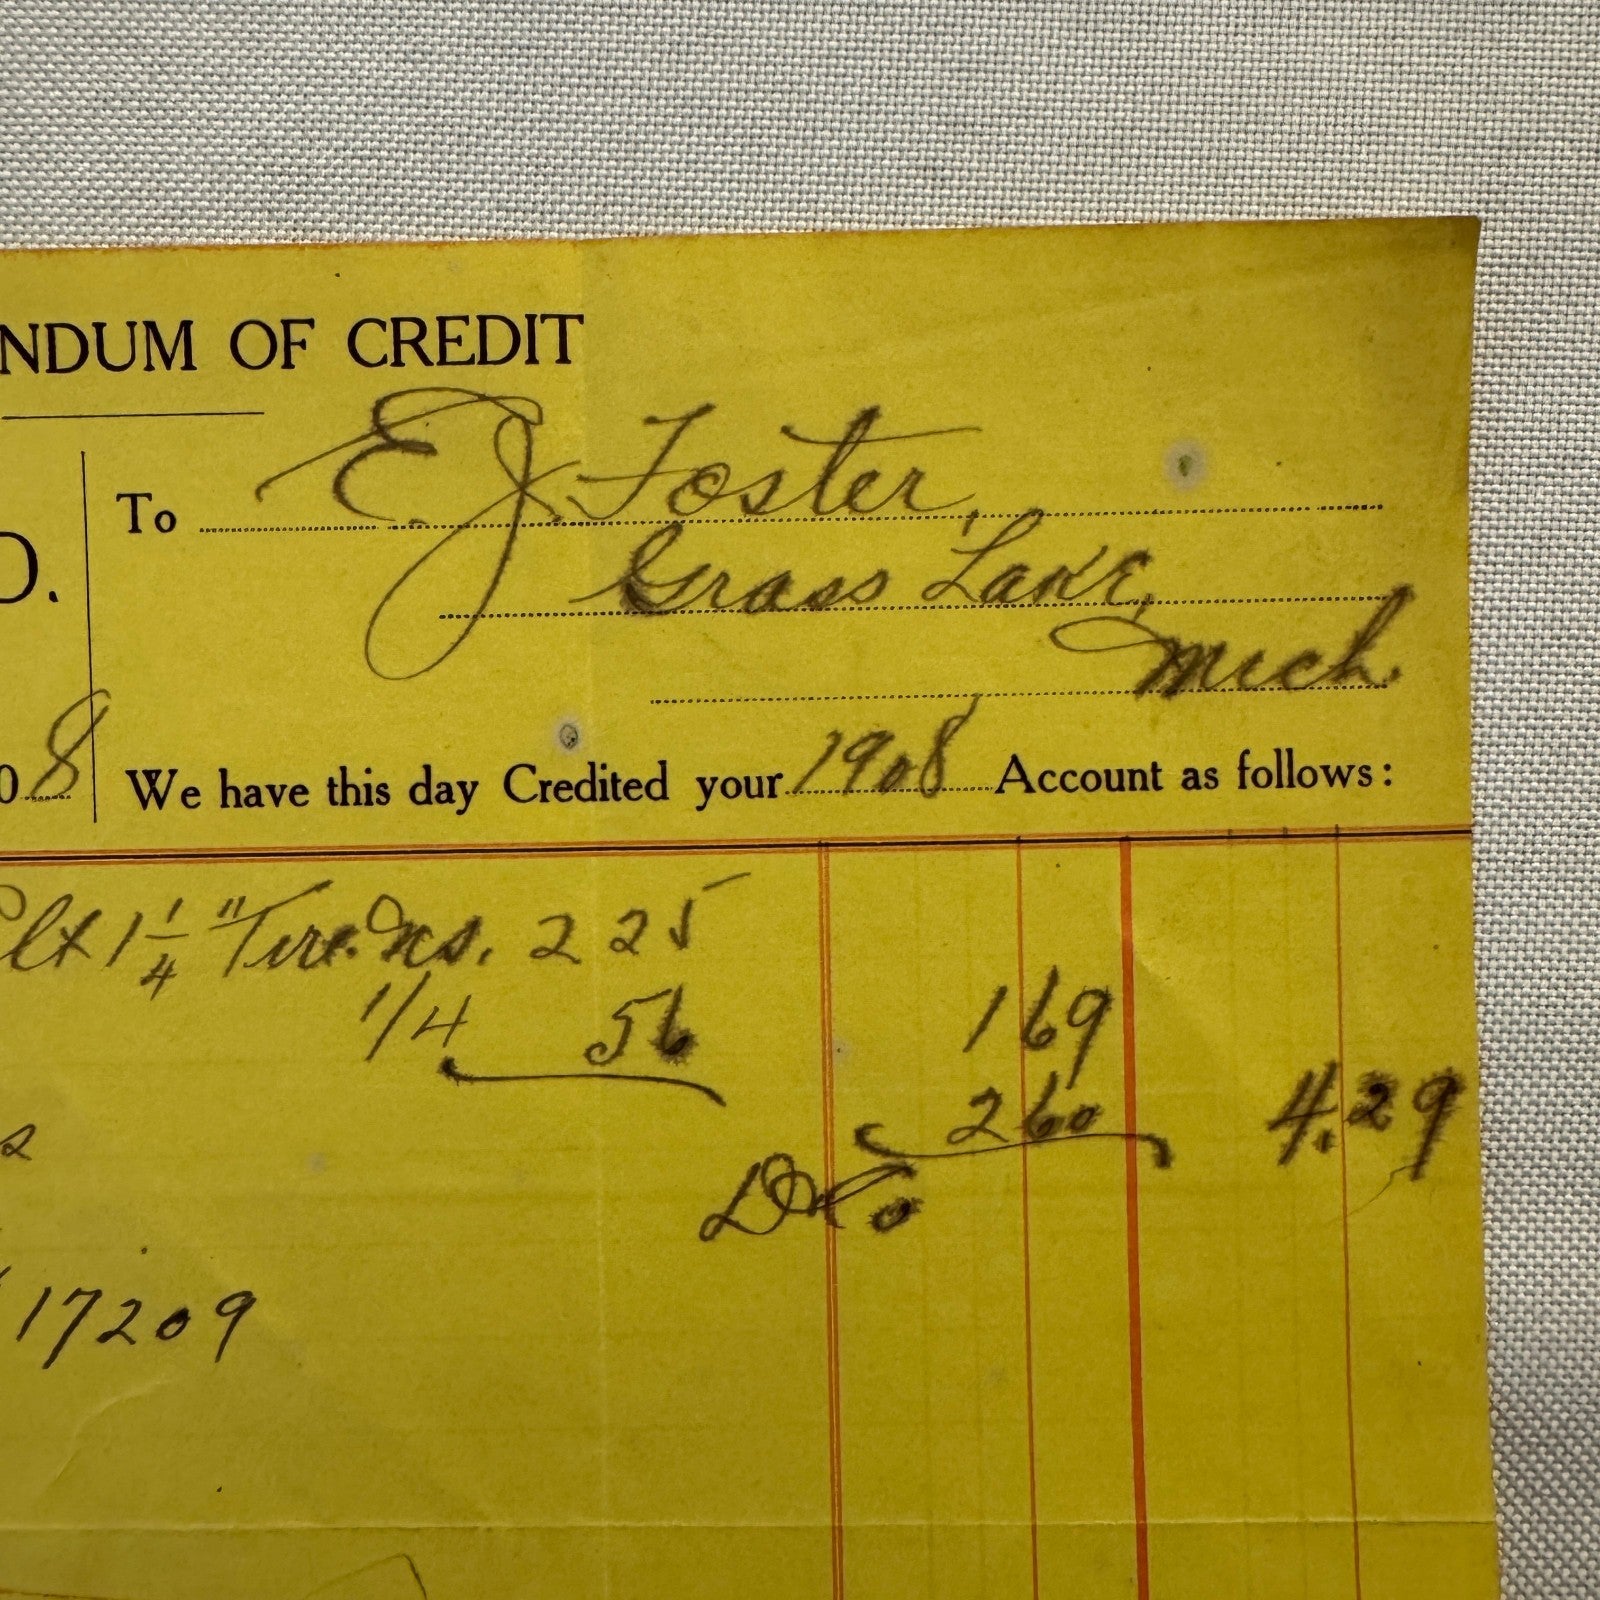 NDUM OF CREDIT
To E. J. Foster,
Grass Lake,
Mich.
D.
08
We have this day Credited your 1908 Account as follows:
1 1/4" Tire 2 25
1/4 56 1 69
2 60 4.29
17209